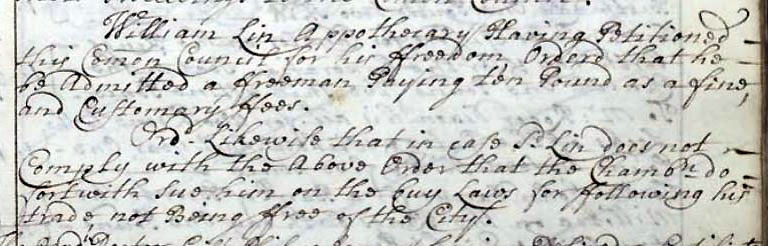 William Lin Appothecary Having Petitioned
this Comon Council for his ffreedom, Orderd that he
be Admitted a ffreeman Paying ten Pound as a fine,
and Customary ffees.
Ord.d Likewise that in case Sd. Lin does not
Comply with the Above Order that the Chambr. do
fortwith Sue him on the buy Laws for following his
trade not Being ffree of the City.